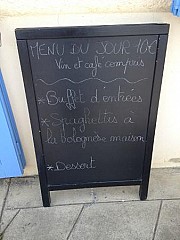 MENU DU JOUR 10€
Vin et café compris
* Buffet d'entrées
* Spaghettis à
la bolognèse maison
* Dessert